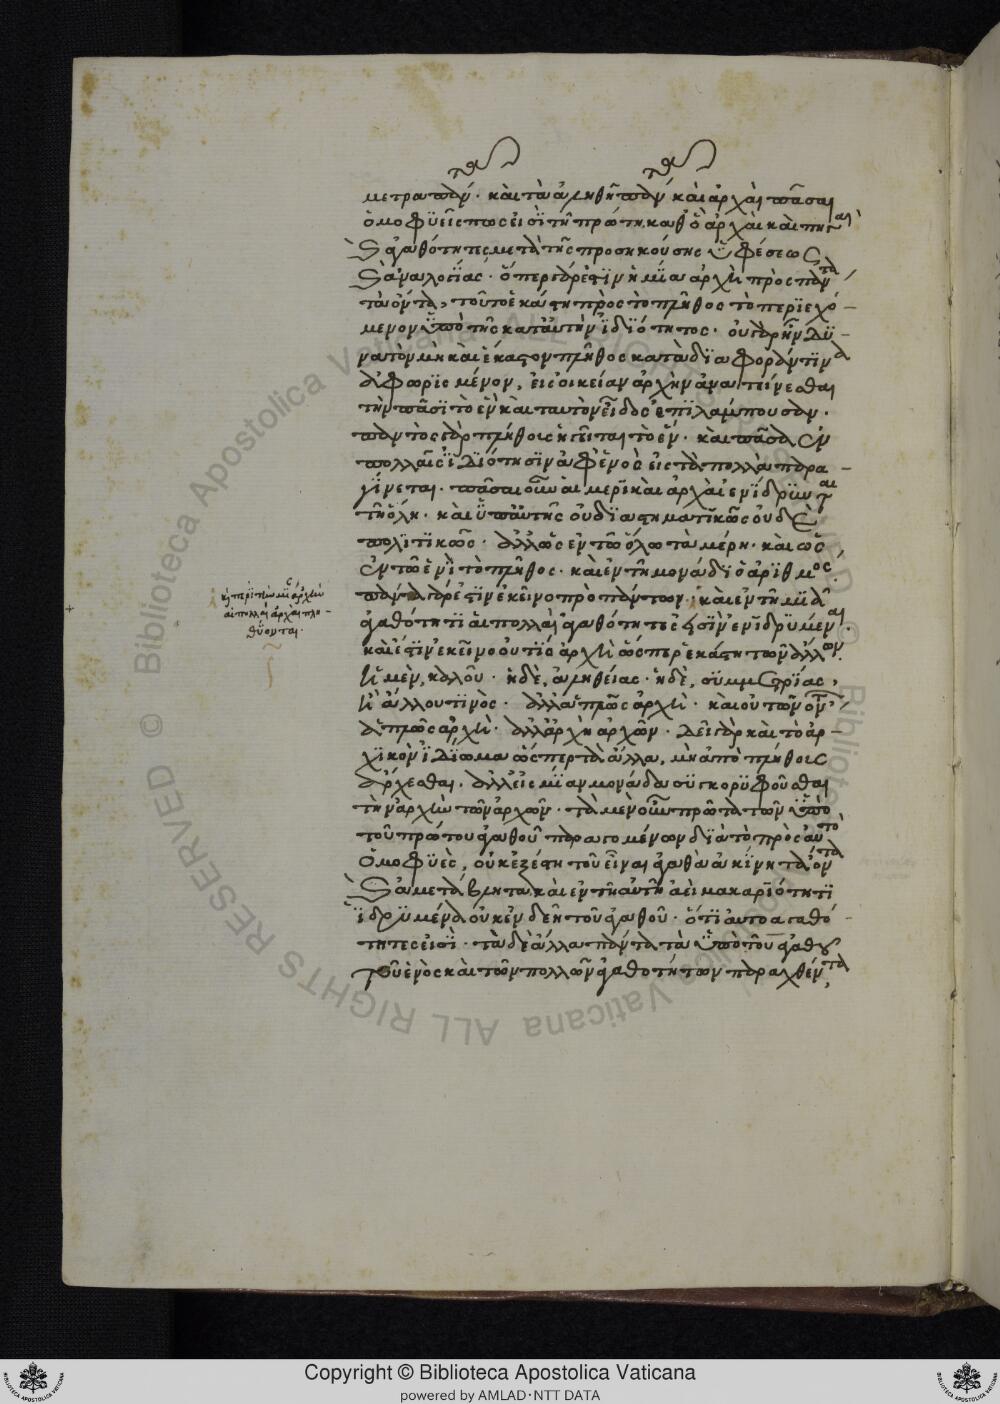 μετρα πάντων. καὶ τὰ ἀληθῆ πάντων. καὶ ἀρχαὶ πᾶσαι
ὁμοφυεῖς πως εἰσὶ τῇ πρώτῃ, καθὸ ἀρχαὶ καὶ πηγαὶ
καὶ ἀγαθότητες μετὰ τῆς προσηκούσης ὑφέσεως
καὶ ἀναλογίας. ὅπερ γάρ ἐστιν ἡ μία ἀρχὴ πρὸς πάντα
τὰ ὄντα, τοῦτο ἑκάστη πρὸς τὸ πλῆθος τὸ περιεχό-
μενον ὑπὸ τῆς κατ' αὐτὴν ἰδιότητος. οὐ γὰρ ἦν δυ-
νατὸν μὴ καὶ ἕκαστον πλῆθος κατὰ διαφορὰν τινὰ
ἀφωρισμένον, εἰς οἰκείαν ἀρχὴν ἀνατείνεσθαι
τὴν πᾶσι τὸ ἓν καὶ ταυτὸν εἶδος ἐπιλάμπουσαν.
παντὸς γὰρ πλήθους ἡγεῖται τὸ ἕν. καὶ πᾶσα ἐν
πολλαῖς ἰδιότησιν ἀφ' ἑνὸς εἰς τὰ πολλὰ παρα-
γίνεται. πᾶσαι οὖν αἱ μερικαὶ ἀρχαὶ ἐνίδρυνται
τῇ ὅλῃ. καὶ ὑπ' αὐτῆς οὐ διαστηματικῶς οὐδὲ
πολιτικῶς. ἀλλ' ὡς ἐν τῷ ὅλῳ τὰ μέρη. καὶ ὡς
ἐν τῷ ἑνὶ τὸ πλῆθος. καὶ ἐν τῇ μονάδι ὁ ἀριθμός.
πάντα γάρ ἐστιν ἐκεῖνο πρὸ πάντων. καὶ ἐν τῇ μιᾷ
ἀγαθότητι αἱ πολλαὶ ἀγαθότητές εἰσιν ἐνιδρυμέναι.
καὶ ἔστιν ἐκεῖνο οὔ τις ἀρχὴ ὥσπερ ἑκάστη τῶν ἄλλων.
ἡ μὲν, κάλλους. ἡ δὲ, ἀληθείας. ἡ δὲ, συμμετρίας,
ἢ ἄλλου τινὸς. ἀλλ' ἁπλῶς ἀρχὴ. καὶ οὐ τῶν ὄντων
ἁπλῶς ἀρχὴ. ἀλλ' ἀρχὴ ἀρχῶν. δεῖ γὰρ καὶ τὸ ἀρ-
χικὸν ἰδίωμα ὥσπερ τὰ ἄλλα, μὴ ἀπὸ πλήθους
ἄρχεσθαι. ἀλλ' εἰς μίαν μονάδα συγκορυφοῦσθαι
τὴν ἀρχὴν τῶν ἀρχῶν. τὰ μὲν οὖν πρῶτα τῶν ὑπὸ
τοῦ πρώτου ἀγαθοῦ παραγομένων διὰ τὸ πρὸς αὐτὸ
ὁμοφυὲς, οὐκ ἐξέστη τοῦ εἶναι ἀγαθὰ ἀκίνητα ὄντα
καὶ ἀμετάβλητα καὶ ἐν τῇ αὐτῇ ἀεὶ μακαριότητι
ἱδρυμένα οὐκ ἐνδεῆ τοῦ ἀγαθοῦ. ὅτι αὐτοαγαθό-
τητές εἰσὶ. τὰ δὲ ἄλλα πάντα τὰ ὑπὸ τοῦ ἀγαθοῦ
τοῦ ἑνὸς καὶ τῶν πολλῶν ἀγαθοτήτων παραχθέντα,
εἰ περὶ τὴν μίαν ἀρχὴν
αἱ πολλαὶ ἀρχαὶ πλη-
θύονται.
© Biblioteca Apostolica Vaticana ALL RIGHTS RESERVED
Copyright © Biblioteca Apostolica Vaticana
powered by AMLAD・NTT DATA